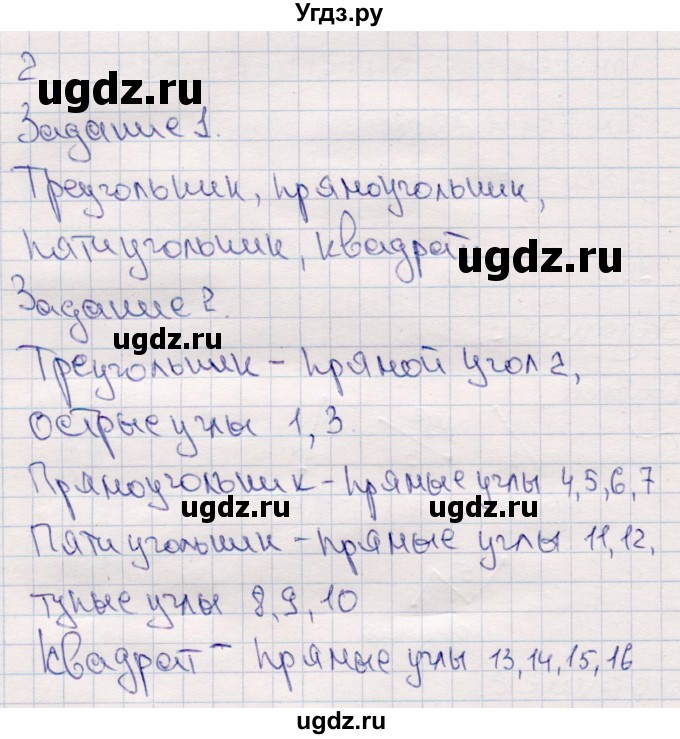 Угдз.ру
2
ugdz.ru
Задание 1.
Треугольник, прямоугольник,
пятиугольник, квадрат
ugdz.ru
Задание 2.
ugdz.ru
Треугольник - прямой угол 2,
острые углы 1, 3.
Прямоугольник - прямые углы 4, 5, 6, 7
ugdz.ru ugdz.ru
Пятиугольник - прямые углы 11, 12,
тупые углы 8, 9, 10
Квадрат - прямые углы 13, 14, 15, 16
ugdz.ru